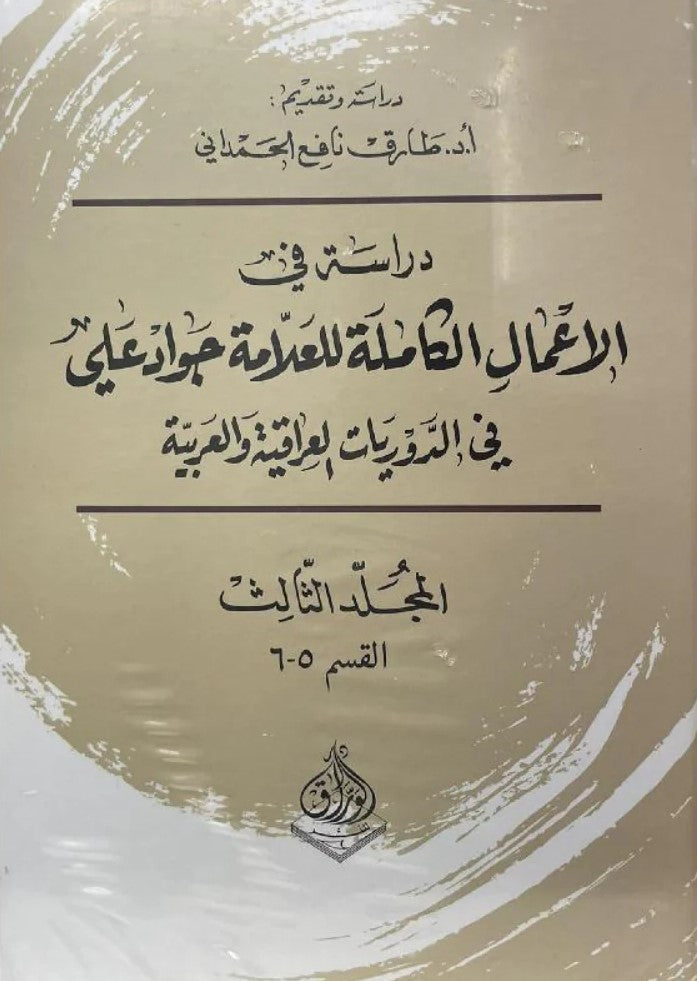 دراسة وتقديم:
أ.د. طارق نافع الحمداني
دراسة في
الأعمال الكاملة للعلامة جواد علي
في الدوريات العراقية والعربية
المجلد الثالث
القسم ٥-٦
الوراق